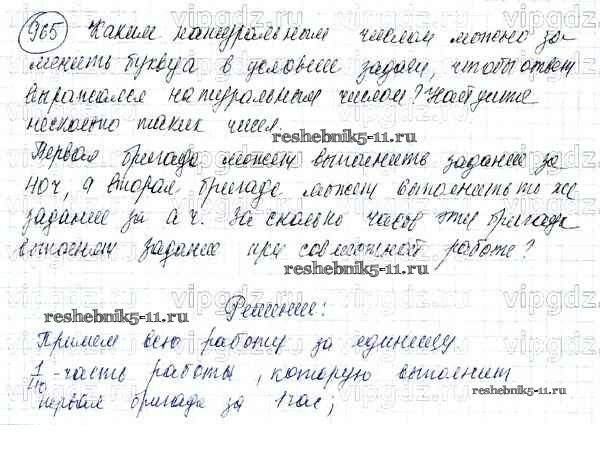 965 Каким натуральным числом можно за-
менить букву а в условии задачи, чтобы ответ
выражался натуральным числом? Найдите
несколько таких чисел.
reshebnik5-11.ru
Первая бригада может выполнить задание за
40 ч, а вторая бригада может выполнить то же
задание за а ч. За сколько часов эти бригады
выполнят задание при совместной работе?
reshebnik5-11.ru
Решение:
reshebnik5-11.ru
Примем всю работу за единицу
1/40 - часть работы, которую выполнит
reshebnik5-11.ru
первая бригада за 1 час;
vipgdz.ru